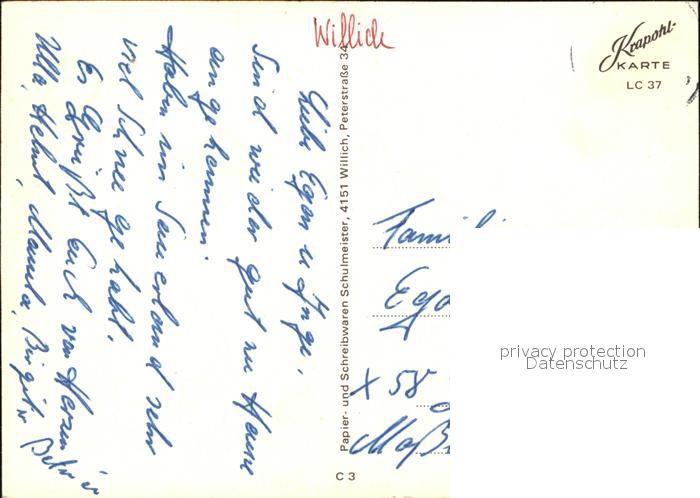 Willich
Krapohl-
KARTE
LC 37
Liebe Egon u Inge,
Sind wieder gut zu Hause
angekommen.
Haben im Sauerland sehr
viel Schnee gehabt.
Es Grüßt Euch von Herzen
Ulla, Helmut, Mama, Birgit u
Papier- und Schreibwaren Schulmeister, 4151 Willich, Peterstraße 34
C 3
Fami
Ego
x 58
privacy protection
Datenschutz